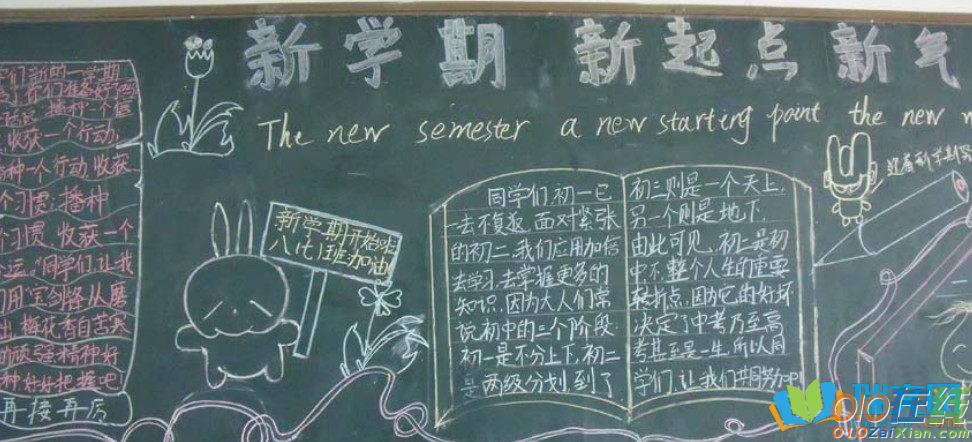 新学期 新起点 新气
The new semester a new starting point the new
们新的一学期
播种一个信
收获一个行动
播种一个行动,收获
个习惯;播种
个习惯,收获一个
运。"同学们,让我
用"宝剑锋从磨
出,梅花香自苦寒
的顽强精神好
好好把握吧!
再接再厉
新学期开始啦
八(七)班加油!
同学们,初一已
去不复返,面对紧张
的初二,我们应用加倍
去学习,去掌握更多的
知识,因为大人们常
说初中的三个阶段:
初一是不分上下,初二
是两级分划,到了
初三则是一个天上,
另一个则是地下.
由此可见,初二是初
中不,整个人生的重要
转折点,因为它的好坏
决定了中考乃至高
考甚至是一生,所以同
学们,让我们共同努力吧!
迎着新学期
在线
OLO在线
OLOZaiXian.com